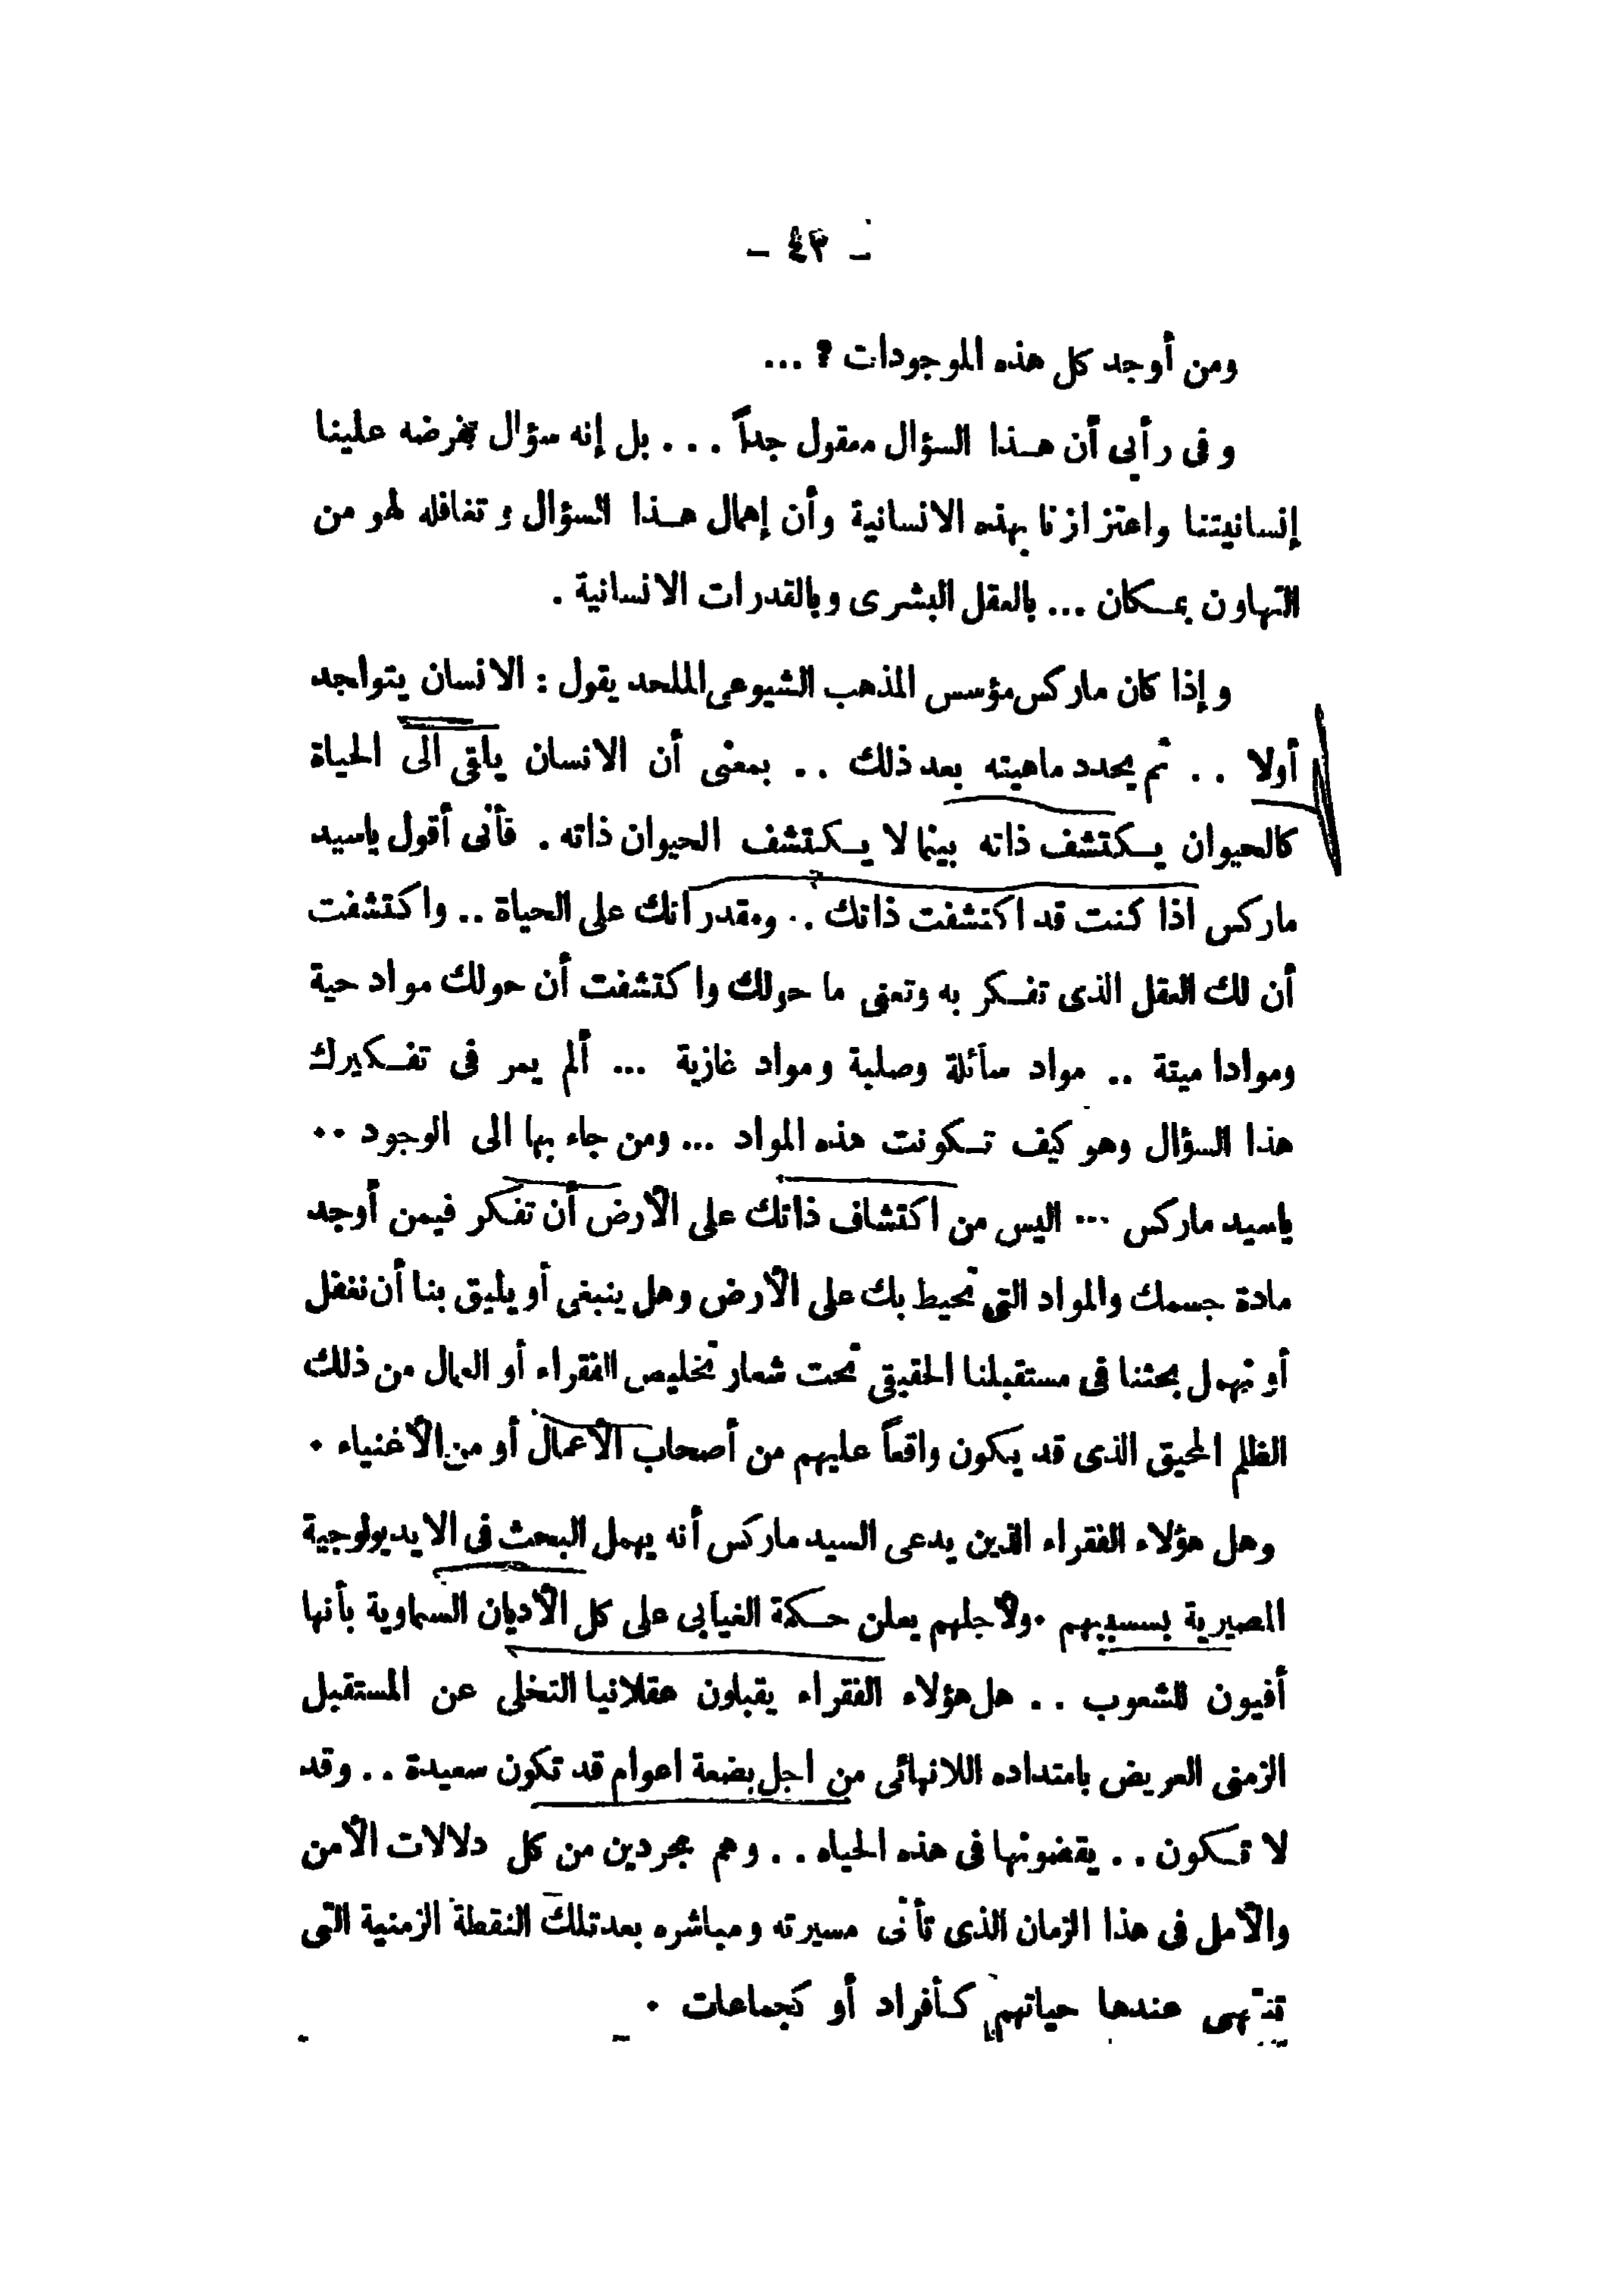 - ٤٣ -
ومن أوجد كل هذه الموجودات ؟ ...
وفى رأيى أن هـذا السؤال معقول جداً . . . بل إنه سؤال تفرضه علينا
إنسانيتنا واعتزازنا بهذه الانسانية وأن إهمال هـذا السؤال وتغافله لهو من
التهاون بمـكان ... بالعقل البشرى وبالقدرات الانسانية .
وإذا كان ماركس مؤسس المذهب الشيوعى الملحد يقول : الانسان يتواجد
أولا . . ثم يحدد ماهيته بعد ذلك . . بمعنى أن الانسان يلقى الى الحياة
كالحيوان يـكتشف ذاته بينما لا يـكتشف الحيوان ذاته . فأنى أقول ياسيد
ماركس اذا كنت قد اكتشفت ذاتك . . ومقدراتك على الحياة .. واكتشفت
أن لك العقل الذى تفـكر به وتعى ما حولك واكتشفت أن حولك مواد حية
وموادا ميتة .. مواد سائلة وصلبة ومواد غازية ... ألم يمر فى تفـكيرك
هذا السؤال وهو كيف تـكونت هذه المواد ... ومن جاء بها الى الوجود ..
ياسيد ماركس ... اليس من اكتشاف ذاتك على الأرض أن تفكر فيمن أوجد
مادة جسمك والمواد التى تحيط بك على الأرض وهل ينبغى أو يليق بنا أن نغفل
أو نهمل بحثنا فى مستقبلنا الحقيقى تحت شعار تخليص الفقراء أو العمال من ذلك
الظلم المحيق الذى قد يكون واقعاً عليهم من أصحاب الأعمال أو من الأغنياء .
وهل هؤلاء الفقراء الذين يدعى السيد ماركس أنه يهمل البحث فى الايديولوجية
المصيرية بسببهم . ولأجلهم يعلن حـكمة الغيابى على كل الأديان السماوية بأنها
أفيون للشعوب . . هل هؤلاء الفقراء يقبلون عقلانيا التخلى عن المستقبل
الزمنى العريض بامتداده اللانهائى من اجل بضعة اعوام قد تكون سعيدة . . وقد
لا تـكون . . يقضونها فى هذه الحياه . . وهم مجردين من كل دلالات الأمن
والأمل فى هذا الزمان الذى تأتى مسيرته ومباشره بعد تلك النقطة الزمنية التى
تنتهى عندها حياتهم كأفراد أو كجماعات .